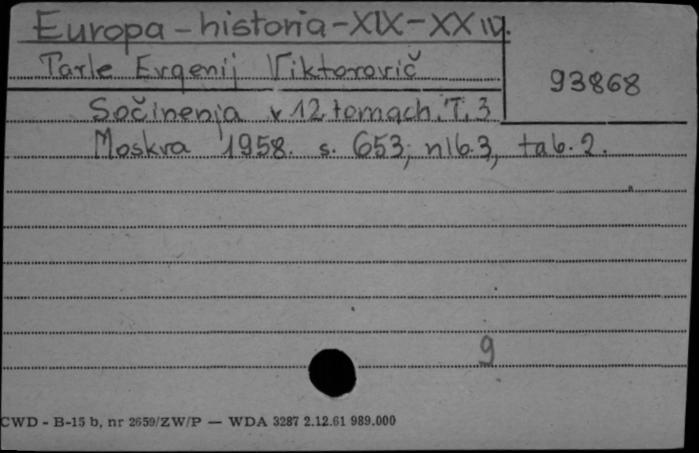 Europa - historia - XIX - XX w.
Tarle Evgenij Viktorovič
93868
Sočinenija v 12 tomach. T. 3
Moskva 1958. s. 653, nlb. 3, tab. 2.
9
CWD - B-15 b, nr 2659/ZW/P — WDA 3287 2.12.61 989.000